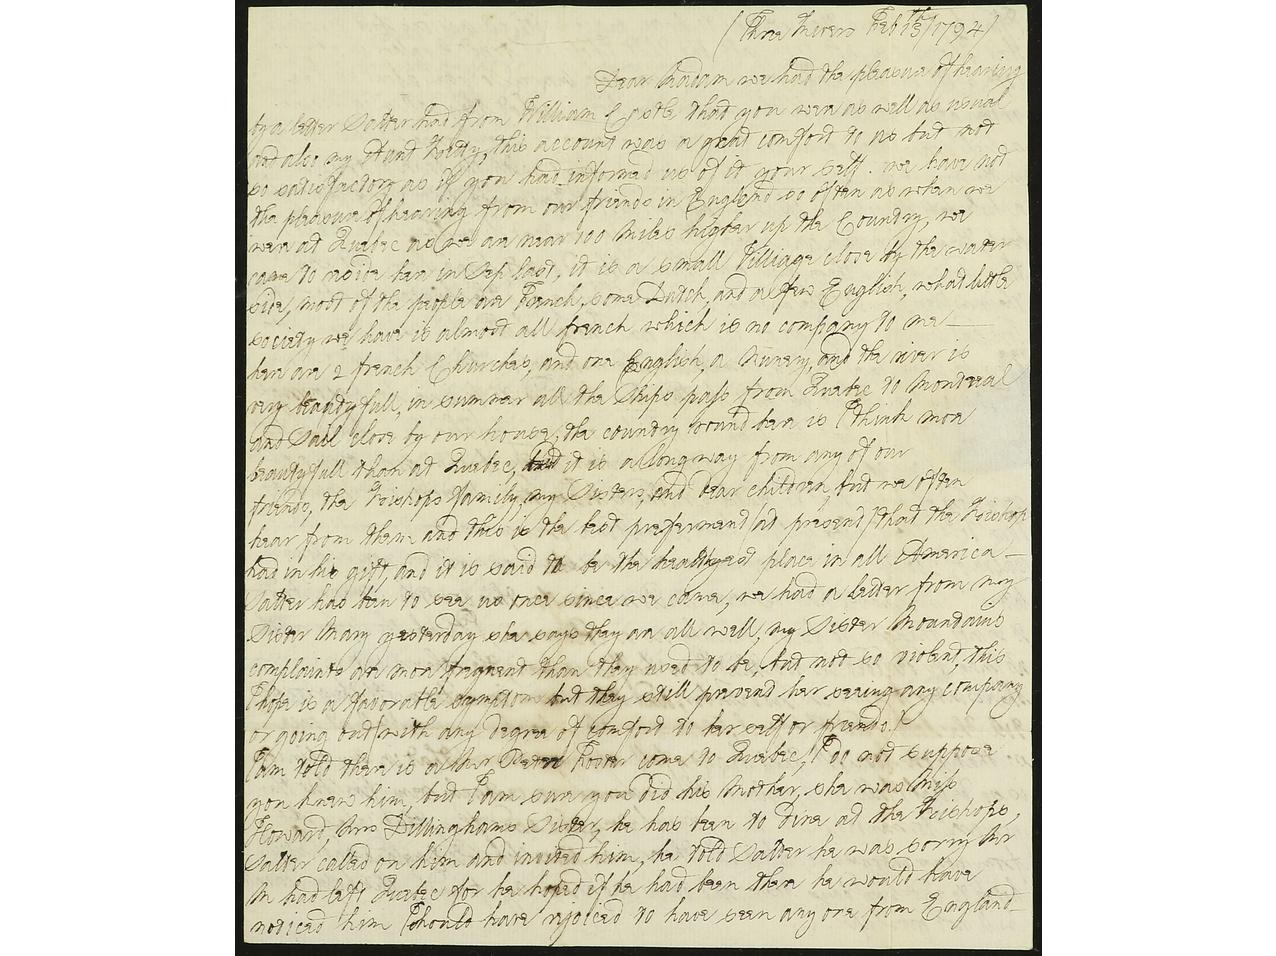 (Three Rivers Feb 15th 1794)
Dear Madam we had the pleasure of hearing
by a letter Salter had from William Castle that you were as well as usual
and also my Aunt Kitty, this account was a great comfort to us but not
so satisfactory as if you had informed us of it your self. we have not
the pleasure of hearing from our friends in England so often as when we
were at Quebec as we are near 100 Miles higher up the Country, we
came to reside here in Sep last, it is a small Villiage close by the water
side, most of the people are French, some Dutch, and a few English, what little
society we have is almost all french which is no company to me —
here are 2 french Churches, and one English, a Nunery, and the river is
very beautyfull, in summer all the Ships pass from Quebec to Montreal
and Sail close by our house, the country round here is I think more
beautyfull than at Quebec, but it is a long way from any of our
friends, the Bishops family, my Sisters, and dear children, but we often
hear from them and this is the best preferment (at present) that the Bishop
had in his gift, and it is said to be the healthyest place in all America —
Salter has been to see us once since we came, we had a letter from my
Sister Mary yesterday she says they are all well, my Sister Mountains
complaints are more frequent than they used to be, but not so violent, this
I hope is a favorable symptom but they still prevent her seeing any company
or going out with any degree of comfort to her self or friends.
I am told there is a Mr Peter Foster come to Quebec, I do not suppose
you knew him, but I am sure you did his Mother, she was Miss
Howard, Mrs Dillinghams Sister, he has been to dine at the Bishops,
Salter called on him and invited him, he told Salter he was sorry Mr
M had left Quebec for he hoped if he had been there he would have
noticed him I should have rejoiced to have seen any one from England —